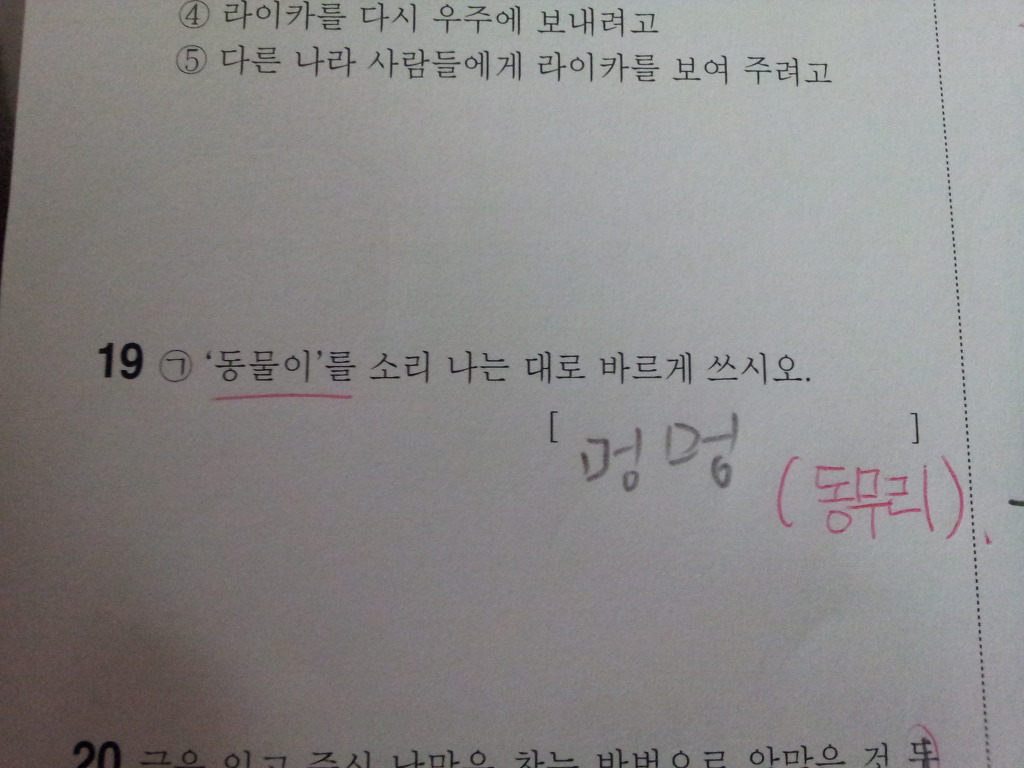 ④ 라이카를 다시 우주에 보내려고
⑤ 다른 나라 사람들에게 라이카를 보여 주려고
19 ㉠ ‘동물이’를 소리 나는 대로 바르게 쓰시오.
[ 멍멍 ]
(동무리)
20